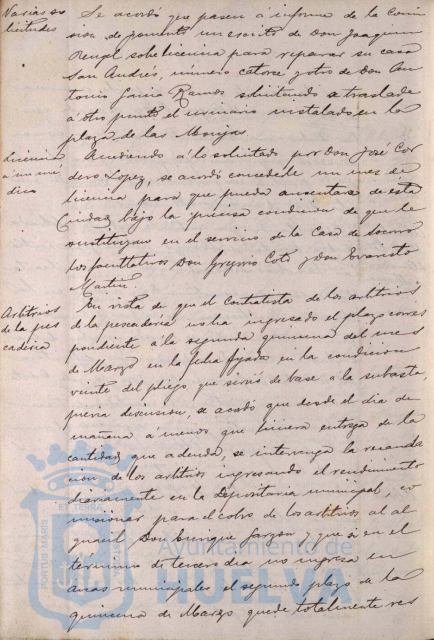 Varias so
licitudes
Se acordó que pasen á informe de la Comi
sion de fomento un escrito de Don Joaquin
Rengel sobre licencia para reparar su casa
San Andrés, número catorce y otro de Don An
tonio Garcia Ramos solicitando se traslade
á otro punto el urinario instalado en la
plaza de las Monjas.
Licencia
á un mé
dico
Accediendo á lo solicitado por Don José Cor
dero Lopez, se acordó concederle un mes de
licencia para que pueda ausentarse de esta
Ciudad bajo la precisa condicion de que le
sustituyan en el servicio de la Casa de Socorro
los facultativos Don Gregorio Coto y Don Evaristo
Martin.
Arbitrios
de la pes
caderia
En vista de que el Contratista de los arbitrios
de la pescaderia no ha ingresado el plazo corres
pondiente á la segunda quincena del mes
de Marzo en la fecha fijada en la condicion
veinte del pliego que sirvió de base á la subasta,
previa discusion, se acordó que desde el dia de
mañana á menos que hiciera entrega de la
cantidad que adeuda, se intervenga la recauda
cion de los arbitrios ingresando el rendimiento
diariamente en la Depositaria municipal, co
misionar para el cobro de los arbitrios al al
guacil Don Enrique Garzon y que si en el
término de tercero dia no ingresa en
arcas municipales el segundo plazo de la
quincena de Marzo quede totalmente res
PORTUS MARIS
ET TERRÆ
Ayuntamiento de
HUELVA